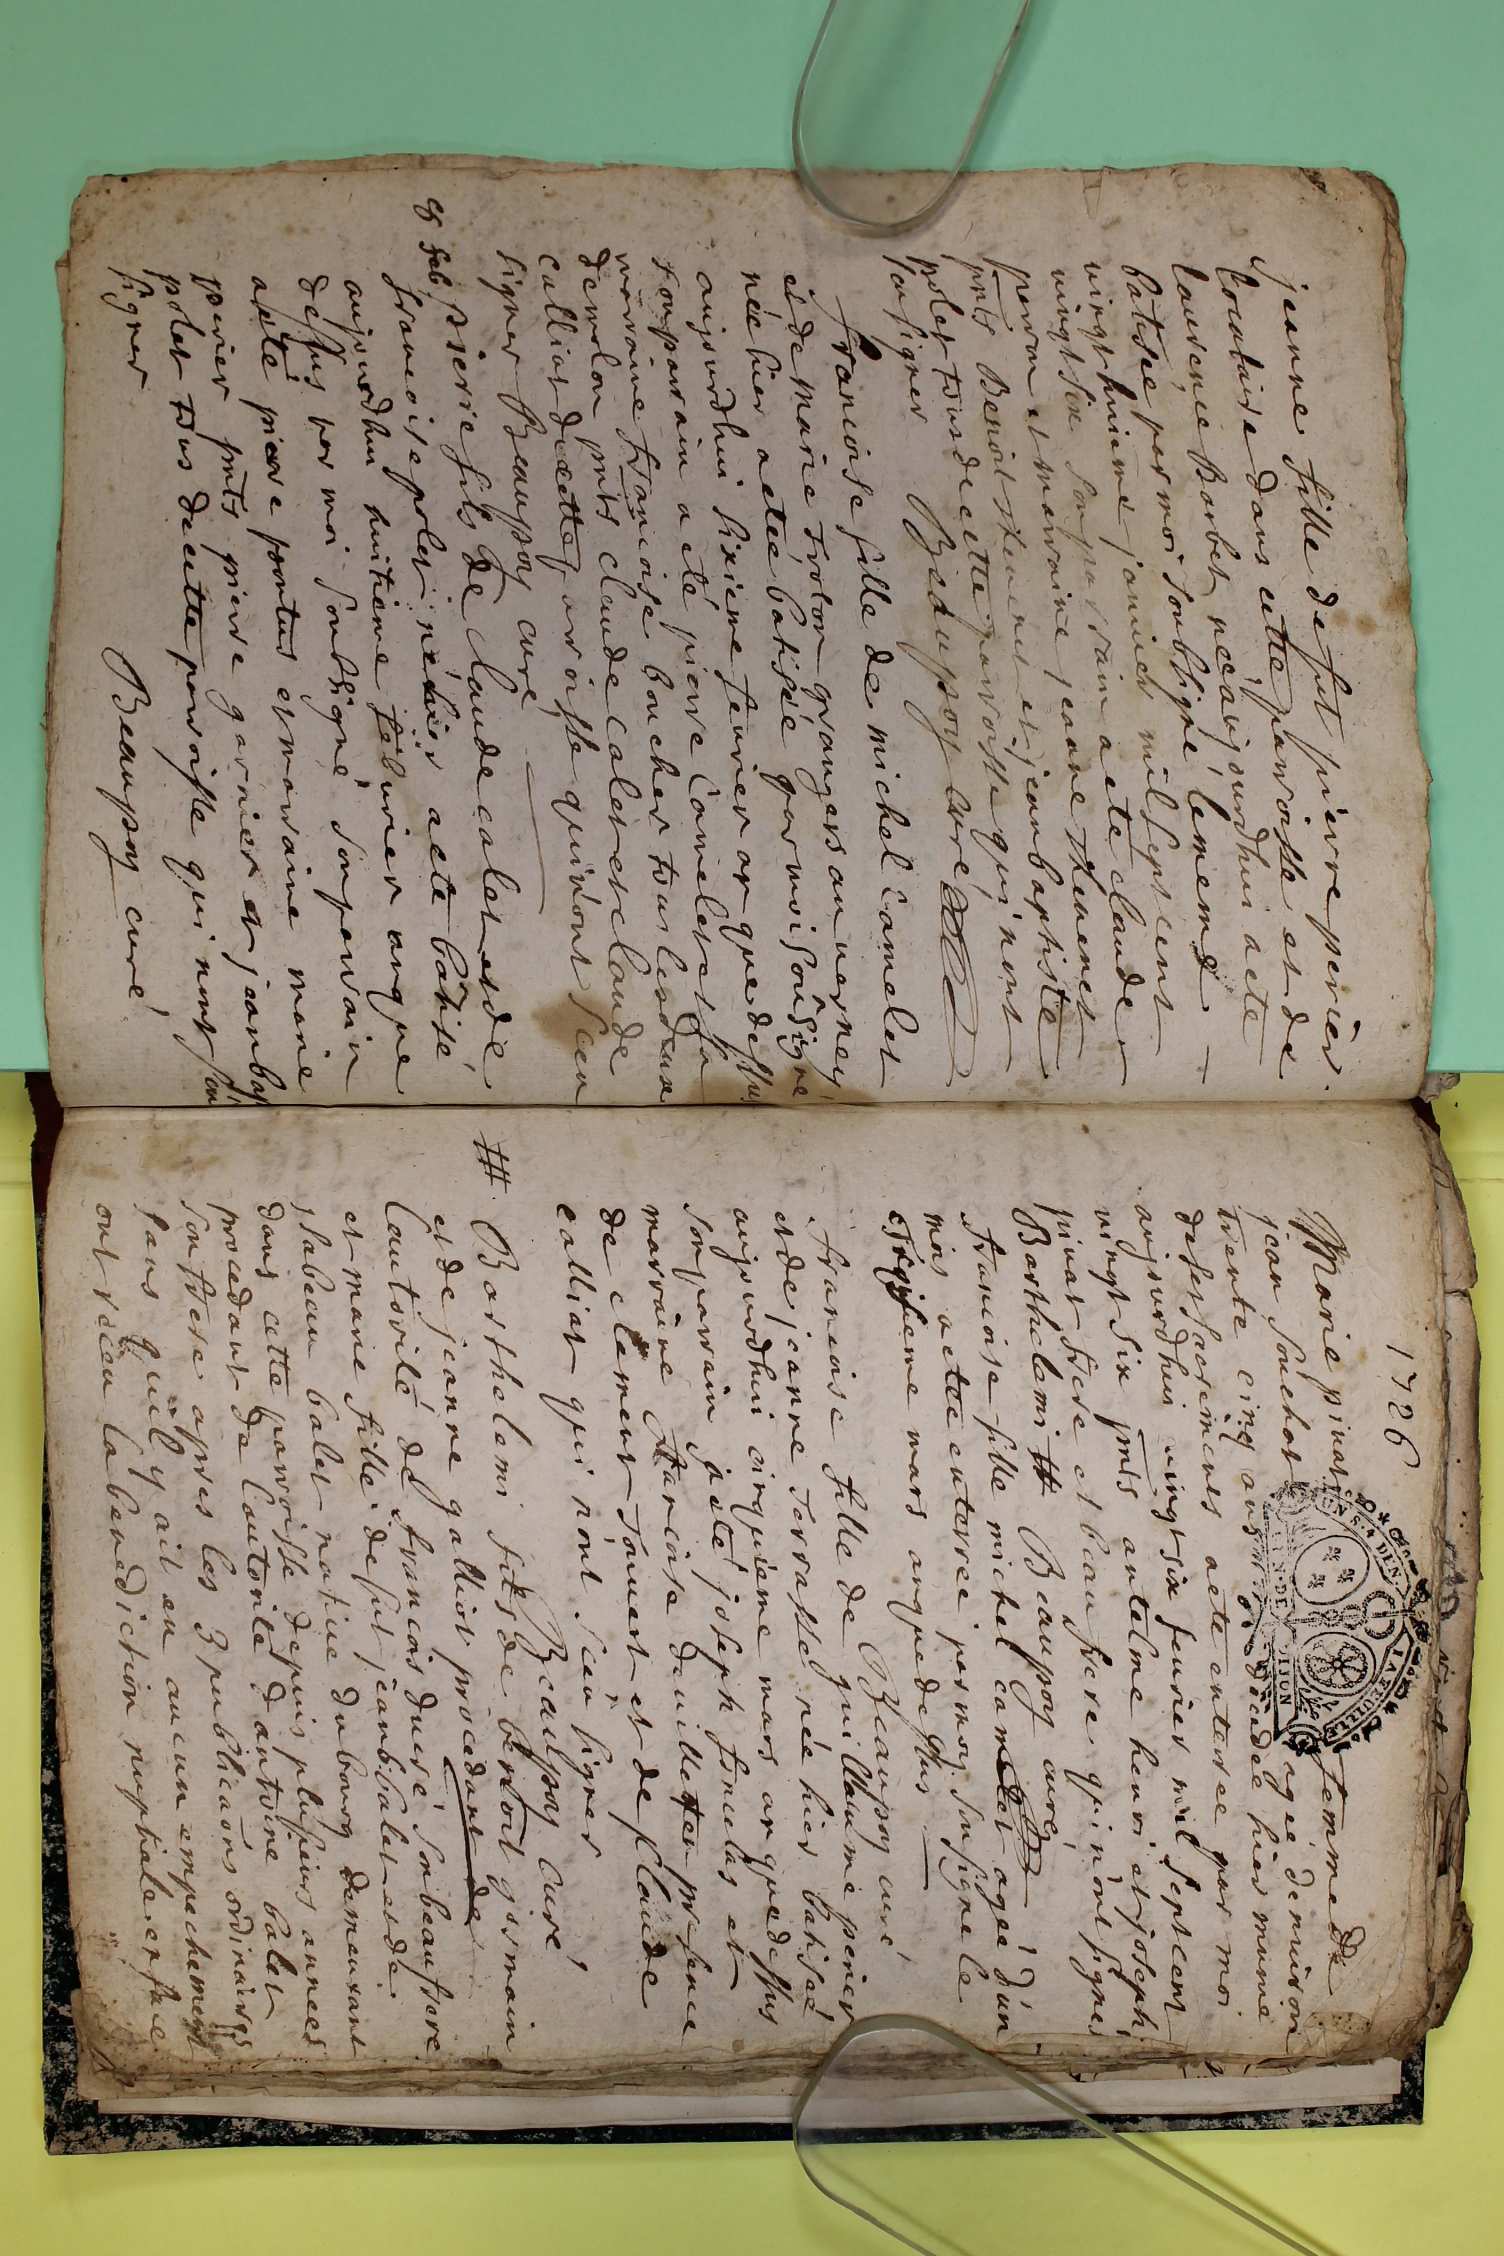 jeanne fille de fut pierre perier
locataire dans cette paroisse et de
laurence Barbet née aujourdhui a ete
batisée par moi soubsigné le meme
vingt huitieme janvier mil sept cent
vingt six son parrain a ete claude
perron et marraine jeanne thevenet
pnts Benoit thevenet et jean baptiste
polet tous de cette paroisse qui n'ont
sceu signer Beaupoy curé
francoise fille de michel camelet
et de marie trolon grangers au verney
née hier a eteé batisée par moi sousigné
aujourdhui sixieme fevrier an que dessus
son parrain a eté pierre Camelet et sa
marraine francoise boucher tous les deux
de molon pnts claude calet et claude
calliat de cette paroisse qui n'ont sceu
signer Beaupoy curé
8 feb pierre fils de claude calet et de
francoise polet né hier a ete batisé
aujourdhui huitieme febvrier an que
dessus par moi soubsigné son parrain
a ete pierre pontus et marraine marie
perier pnts pierre garnier et jean bap
polet tous de cette paroisse qui n'ont sceu
signer Beaupoy curé
1726
Marie pivat femme de
jean souchet agée d'environ
trente cinq ans decedée hier munie
de ses sacremens a ete enterrée par moi
aujourdhui vingt six fevrier mil sept cent
vingt six pnts antelme henri et joseph
pivat frere et beau frere qui n'ont signes
Barthelemi # Beaupoy curé
francoise fille michel camelet agée d'un
mois a ete enterrée par moy sousigné le
troisieme mars an que dessus
Beaupoy curé
francoise fille de guillaume perier
et de jeanne terrasse née hier batisée
aujourdhui cinquieme mars an que dessus
son parrain a eté joseph et
marraine francoise presence
de clement tonuet et de claude
calliat qui n'ont sceu signer
Beaupoy curé
# Barthelemi fils de benoit germain
et de jeanne galliot procedant de
l'autorité de francois ducré son beaufrere
et marie fille de fut jean balet et de
isabeau balet native du bourg demeurant
dans cette paroisse depuis plusieurs années
procedant de l'autorité d'antoine balet
son frere apres les 3 publicaons ordinaires
sans quil y ait eu aucun empechement
ont receu la benediction nuptiale en face